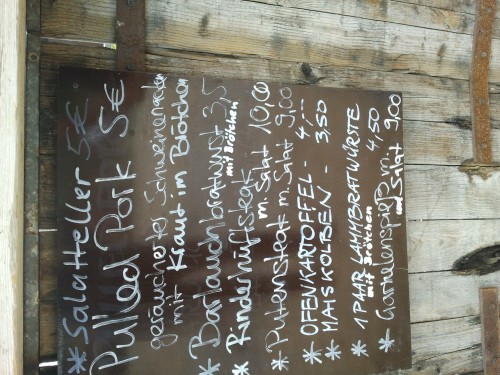 * Salatteller 5€
Pulled Pork 5€
geräucherter Schweinenacken
mit Kraut im Brötchen
* Bärlauchbratwurst 3,5
mit Brötchen
* Rinderhüftsteak
m. Salat 10,00
* Putensteak m. Salat 9,00
* OFENKARTOFFEL - 4,--
* MAISKOLBEN - 3,50
* 1 PAAR LAMMBRATWÜRSTE
mit Brötchen 4,50
* Garnelenspieß m.
und Salat 9,00